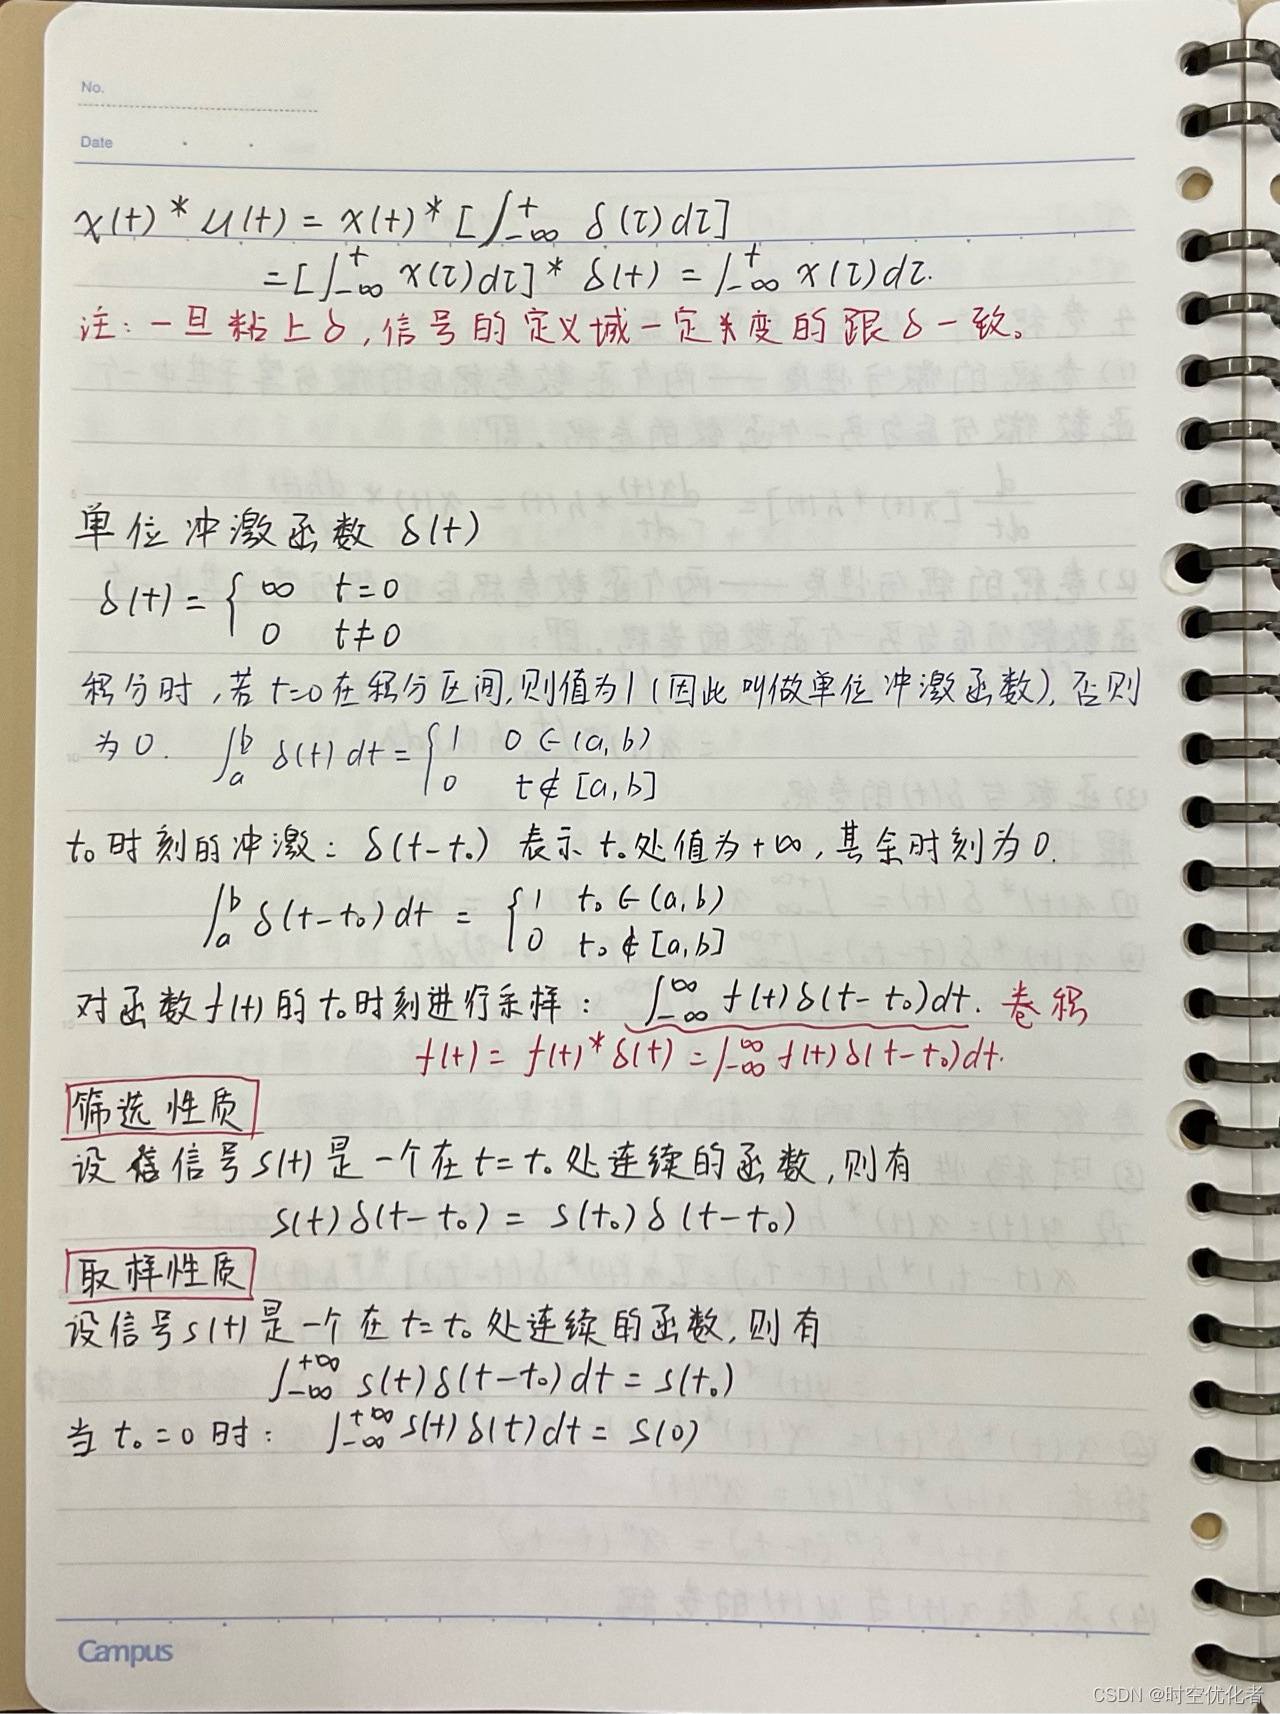 No.
Date
x(t) * u(t) = x(t) * [∫_{-∞}^{t} δ(τ)dτ]
= [∫_{-∞}^{t} x(τ)dτ] * δ(t) = ∫_{-∞}^{t} x(τ)dτ.
注：一旦粘上δ，信号的定义域一定变的跟δ一致。
单位冲激函数 δ(t)
δ(t) = { ∞ t=0
0 t≠0
积分时，若t=0在积分区间，则值为1（因此叫做单位冲激函数），否则
为0. ∫_a^b δ(t)dt = { 1 0∈(a,b)
0 t∉[a,b]
t₀时刻的冲激：δ(t-t₀) 表示t₀处值为+∞，其余时刻为0.
∫_a^b δ(t-t₀)dt = { 1 t₀∈(a,b)
0 t₀∉[a,b]
对函数f(t)的t₀时刻进行采样：∫_{-∞}^{∞} f(t)δ(t-t₀)dt. 卷积
f(t) = f(t) * δ(t) = ∫_{-∞}^{∞} f(t)δ(t-t₀)dt.
筛选性质
设信号s(t)是一个在t=t₀处连续的函数，则有
s(t)δ(t-t₀) = s(t₀)δ(t-t₀)
取样性质
设信号s(t)是一个在t=t₀处连续的函数，则有
∫_{-∞}^{+∞} s(t)δ(t-t₀)dt = s(t₀)
当t₀=0时：∫_{-∞}^{+∞} s(t)δ(t)dt = s(0)
Campus
CSDN @时空优化者